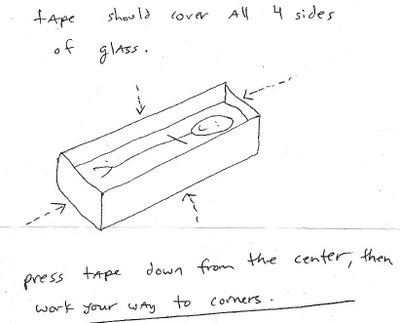 tApe should cover All 4 sides
of glAss.
press tApe down from the center, then
work your wAy to corners.